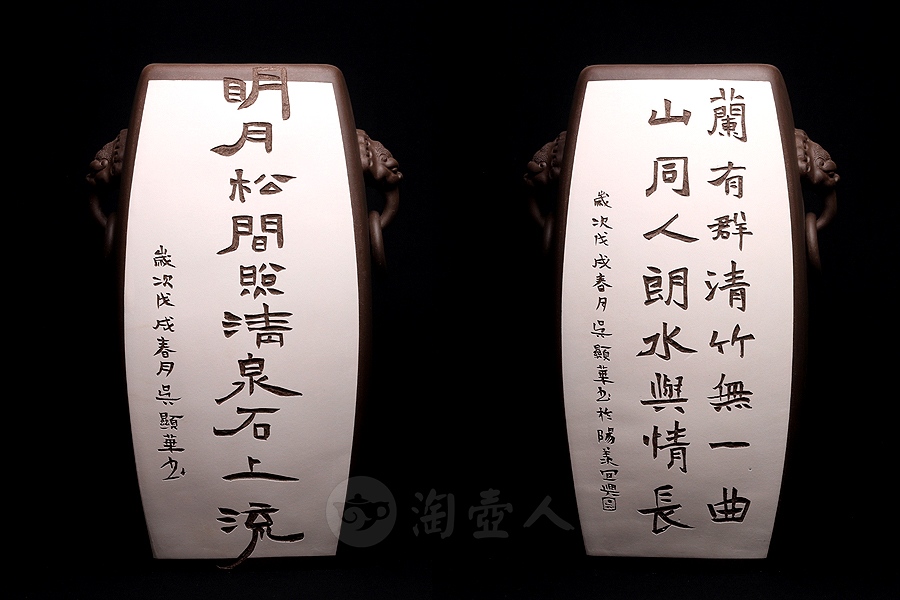 明月松間照清泉石上流
歲次戊戌春月吳顯華书
蘭有群清竹無一曲
山同人朗水與情長
歲次戊戌春月吳顯華书於陽羨
淘壺人